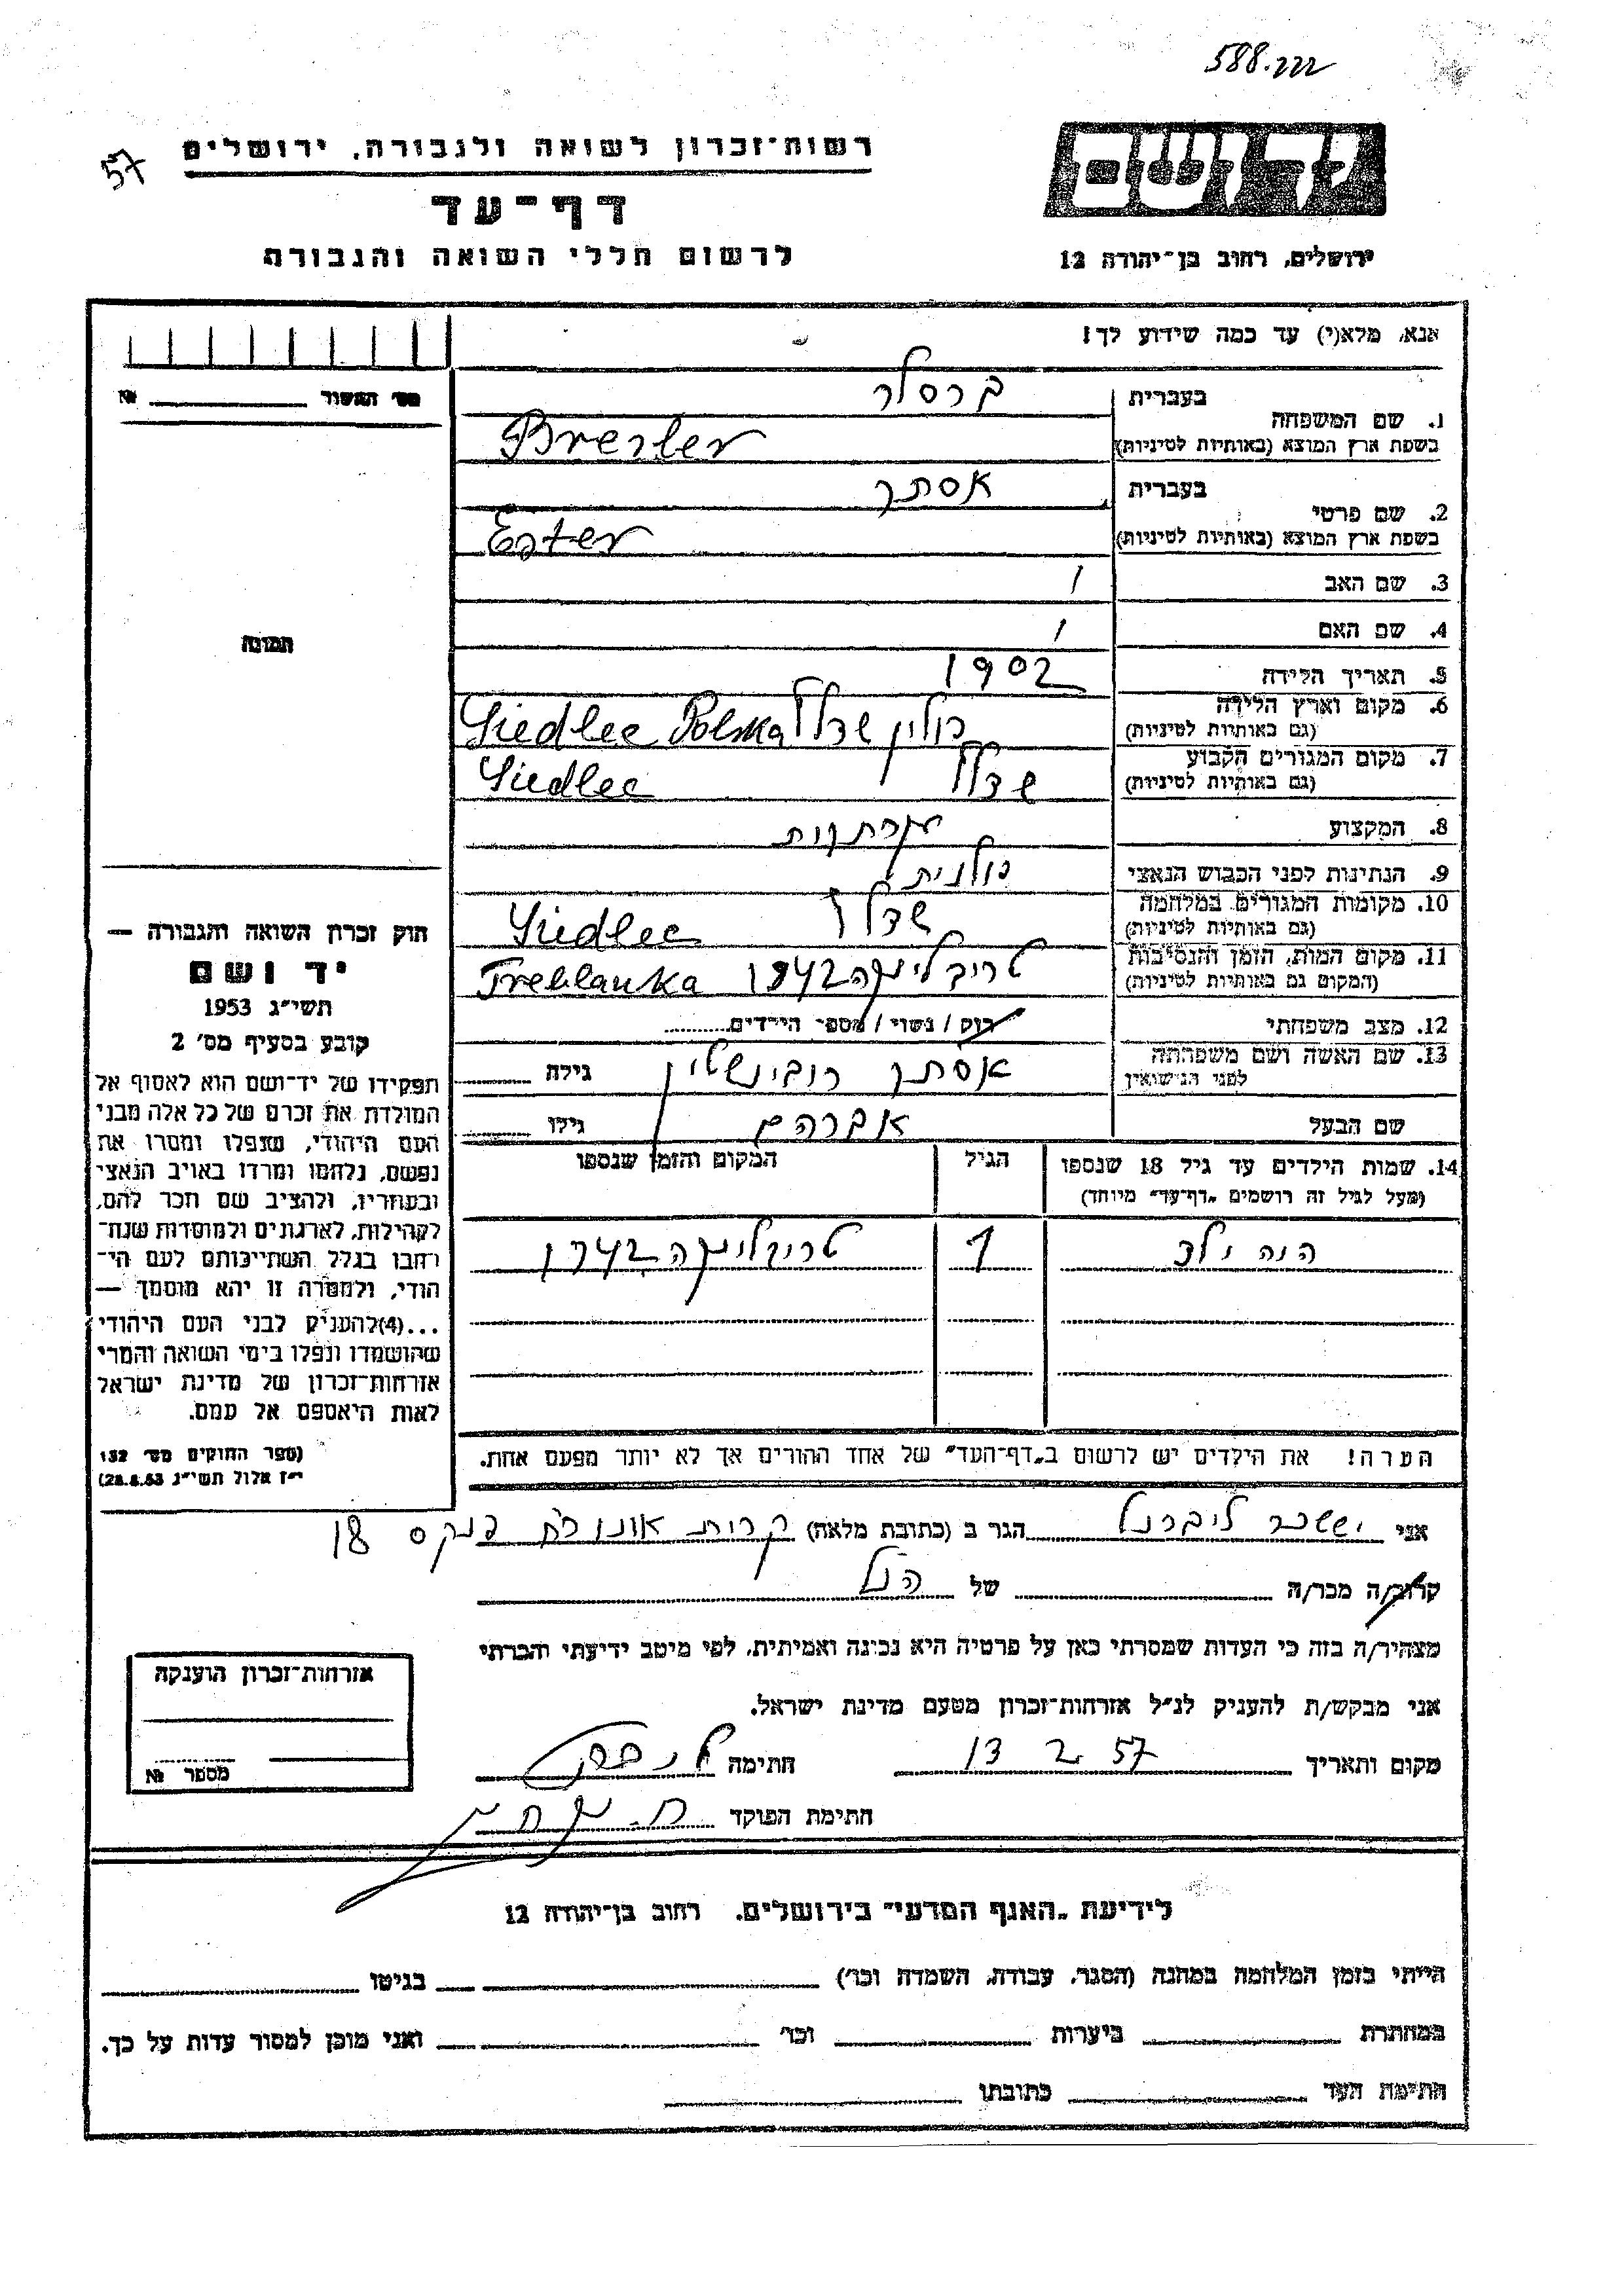 588.
57
רשות־זכרון לשואה ולגבורה, ירושלים
דף־עד
לרשום חללי השואה והגבורה
יד ושם
ירושלים, רחוב בן־יהודה 12
אנא, מלא(י) עד כמה שידוע לך!
מס׳ האשור ______ №
תמונה
1. שם המשפחה
בעברית ברסלר
בשפת ארץ המוצא (באותיות לטיניות) Bresler
2. שם פרטי
בעברית אסתר
בשפת ארץ המוצא (באותיות לטיניות) Ester
3. שם האב /
4. שם האם /
5. תאריך הלידה 1902
6. מקום וארץ הלידה פולין שדלץ Siedlec Polska
(גם באותיות לטיניות)
7. מקום המגורים הקבוע שדלץ Siedlec
(גם באותיות לטיניות)
8. המקצוע
9. הנתינות לפני הכבוש הנאצי פולנית
10. מקומות המגורים במלחמה שדלץ Siedlec
(גם באותיות לטיניות)
11. מקום המות, הזמן והנסיבות טריבלינקה 1942 Treblanka
(המקום גם באותיות לטיניות)
12. מצב משפחתי רוק / נשוי / מספר הילדים
13. שם האשה ושם משפחתה אסתר רובינשטיין גילה
לפני הנישואין
שם הבעל אברהם גילו
14. שמות הילדים עד גיל 18 שנספו הגיל המקום והזמן שנספו
(מעל לגיל זה רושמים „דף־עד״ מיוחד)
היה ילד 1 טריבלינקה 1942
הערה! את הילדים יש לרשום ב„דף־העד״ של אחד ההורים אך לא יותר מפעם אחת.
חוק זכרון השואה והגבורה —
יד ושם
תשי״ג 1953
קובע בסעיף מס׳ 2
תפקידו של יד־ושם הוא לאסוף אל
המולדת את זכרם של כל אלה מבני
העם היהודי, שנפלו ומסרו את
נפשם, נלחמו ומרדו באויב הנאצי
ובעוזריו, ולהציב שם וזכר להם,
לקהילות, לארגונים ולמוסדות שנח־
רבו בגלל השתייכותם לעם הי־
הודי, ולמטרה זו יהא מוסמך —
...(4)להעניק לבני העם היהודי
שהושמדו ונפלו בימי השואה והמרי
אזרחות־זכרון של מדינת ישראל
לאות היאספם אל עמם.
(ספר החוקים מס׳ 132
י״ז אלול תשי״ג 28.8.53)
אני יששכר ליברנל הגר ב (כתובת מלאה) קרית אונו פנקס 18
קרוב/ה מכר/ה של הנ״ל
מצהיר/ה בזה כי העדות שמסרתי כאן על פרטיה היא נכונה ואמיתית, לפי מיטב ידיעתי והכרתי
אני מבקש/ת להעניק לנ״ל אזרחות־זכרון מטעם מדינת ישראל.
מקום ותאריך 13 2 57 חתימה
חתימת הפוקד
אזרחות־זכרון הוענקה
מספר №
לידיעת „האגף המדעי״ בירושלים, רחוב בן־יהודה 12
הייתי בזמן המלחמה במחנה (הסגר, עבודה, השמדה וכו׳) בגיטו
במחתרת ביערות וכו׳ ואני מוכן למסור עדות על כך.
חתימת העד כתובתו